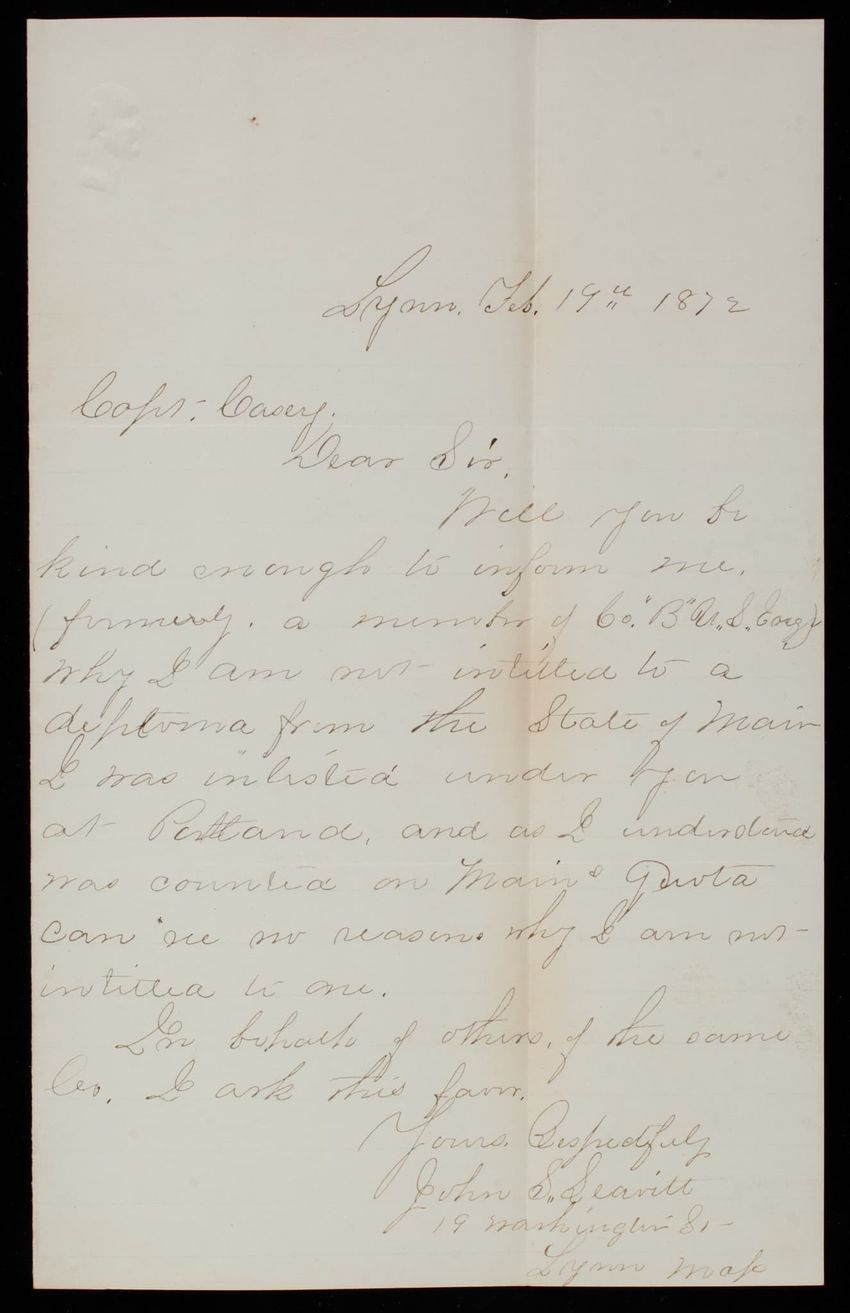 Lynn. Feb. 19th 1872
Capt. Casey.
Dear Sir,
Will you be
kind enough to inform me,
(formerly. a member of Co. "B" U.S. Eng)
why I am not intitled to a
deploma from the State of Main
I was inlisted under you
at Portland, and as I understand
was counted on Mains Quota
can see no reason why I am not
intitled to one.
In behalf of others, of the same
Co. I ask this favor.
Yours. Respectfuly
John S. Leavitt
19 Washington St
Lynn Mass